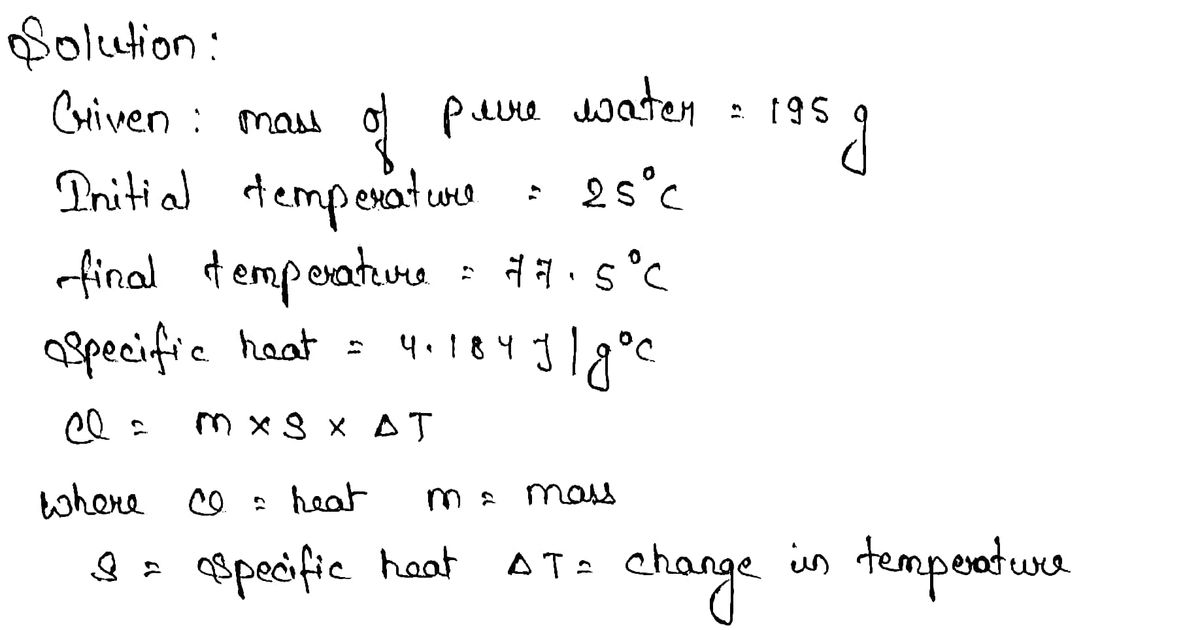 Solution:
Given: mass of pure water = 195 g
Initial temperature = 25°C
final temperature = 77.5°C
Specific heat = 4.184 J/g°C
Q = m × S × ΔT
where Q = heat m = mass
S = Specific heat ΔT = change in temperature